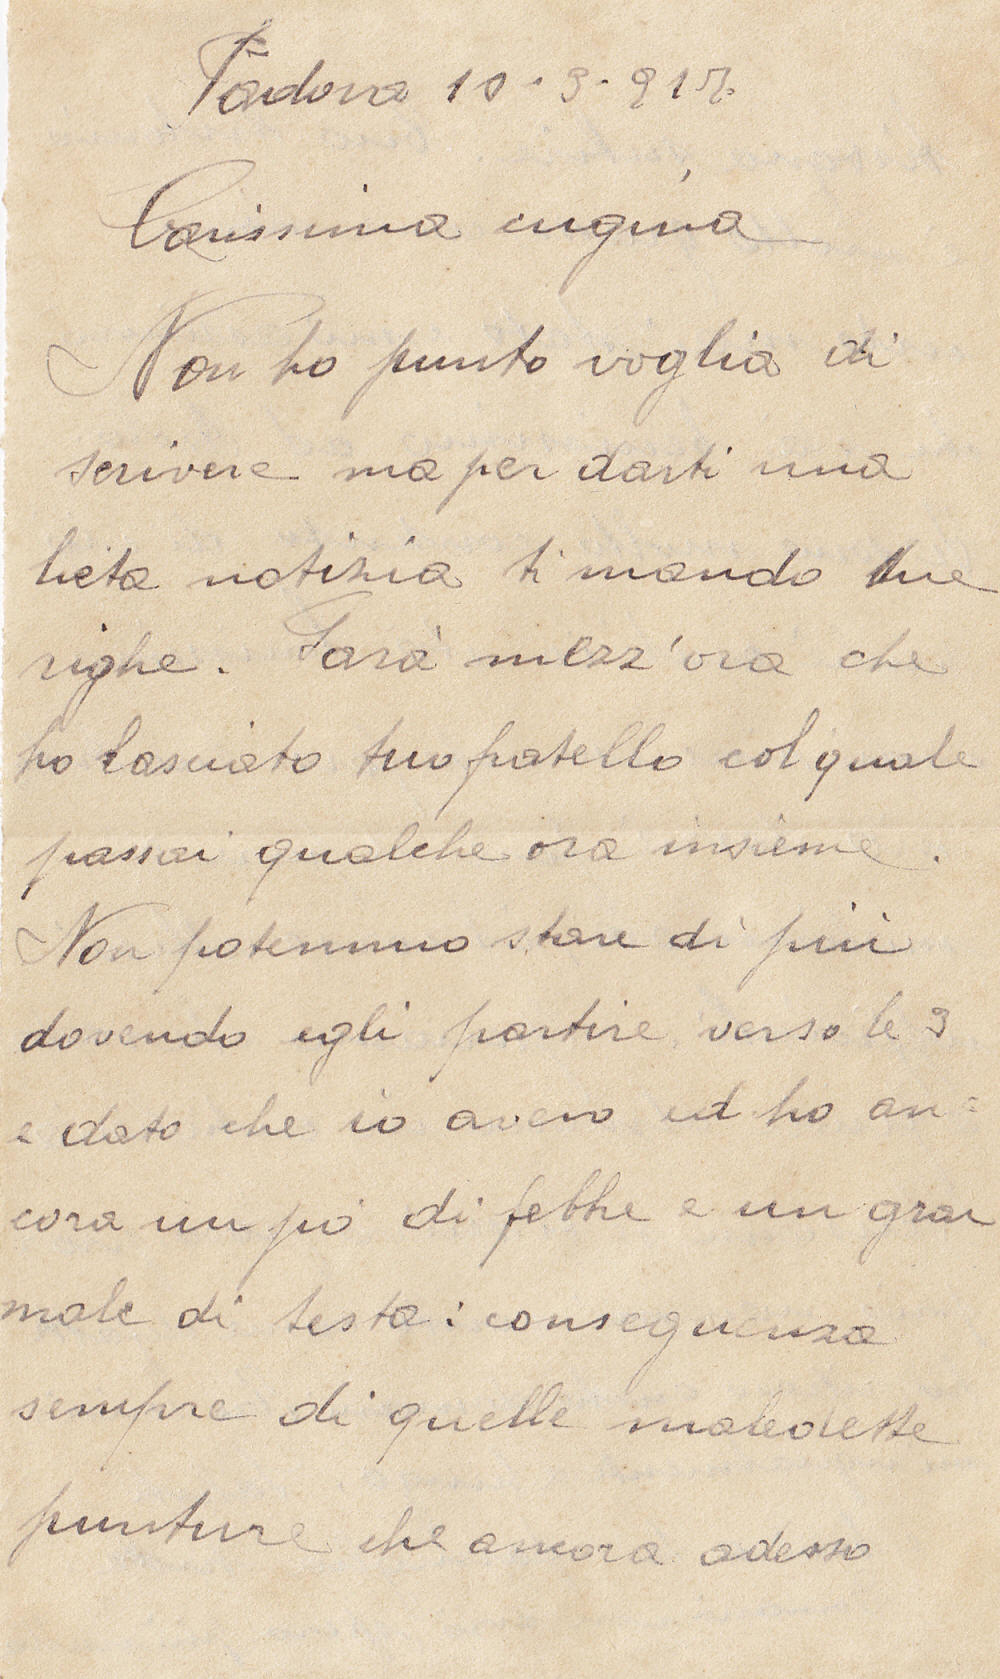 Padova 10-9-917.
Carissima cugina
Non ho punto voglia di
scrivere ma per darti una
lieta notizia ti mando due
righe. Sarà mezz'ora che
ho lasciato tuo fratello col quale
passai qualche ora insieme.
Non potemmo stare di più
dovendo egli partire verso le 9
e dato che io avevo ed ho an=
cora un pò di febbre e un gran
male di testa: conseguenza
sempre di quelle maledette
punture che ancora adesso